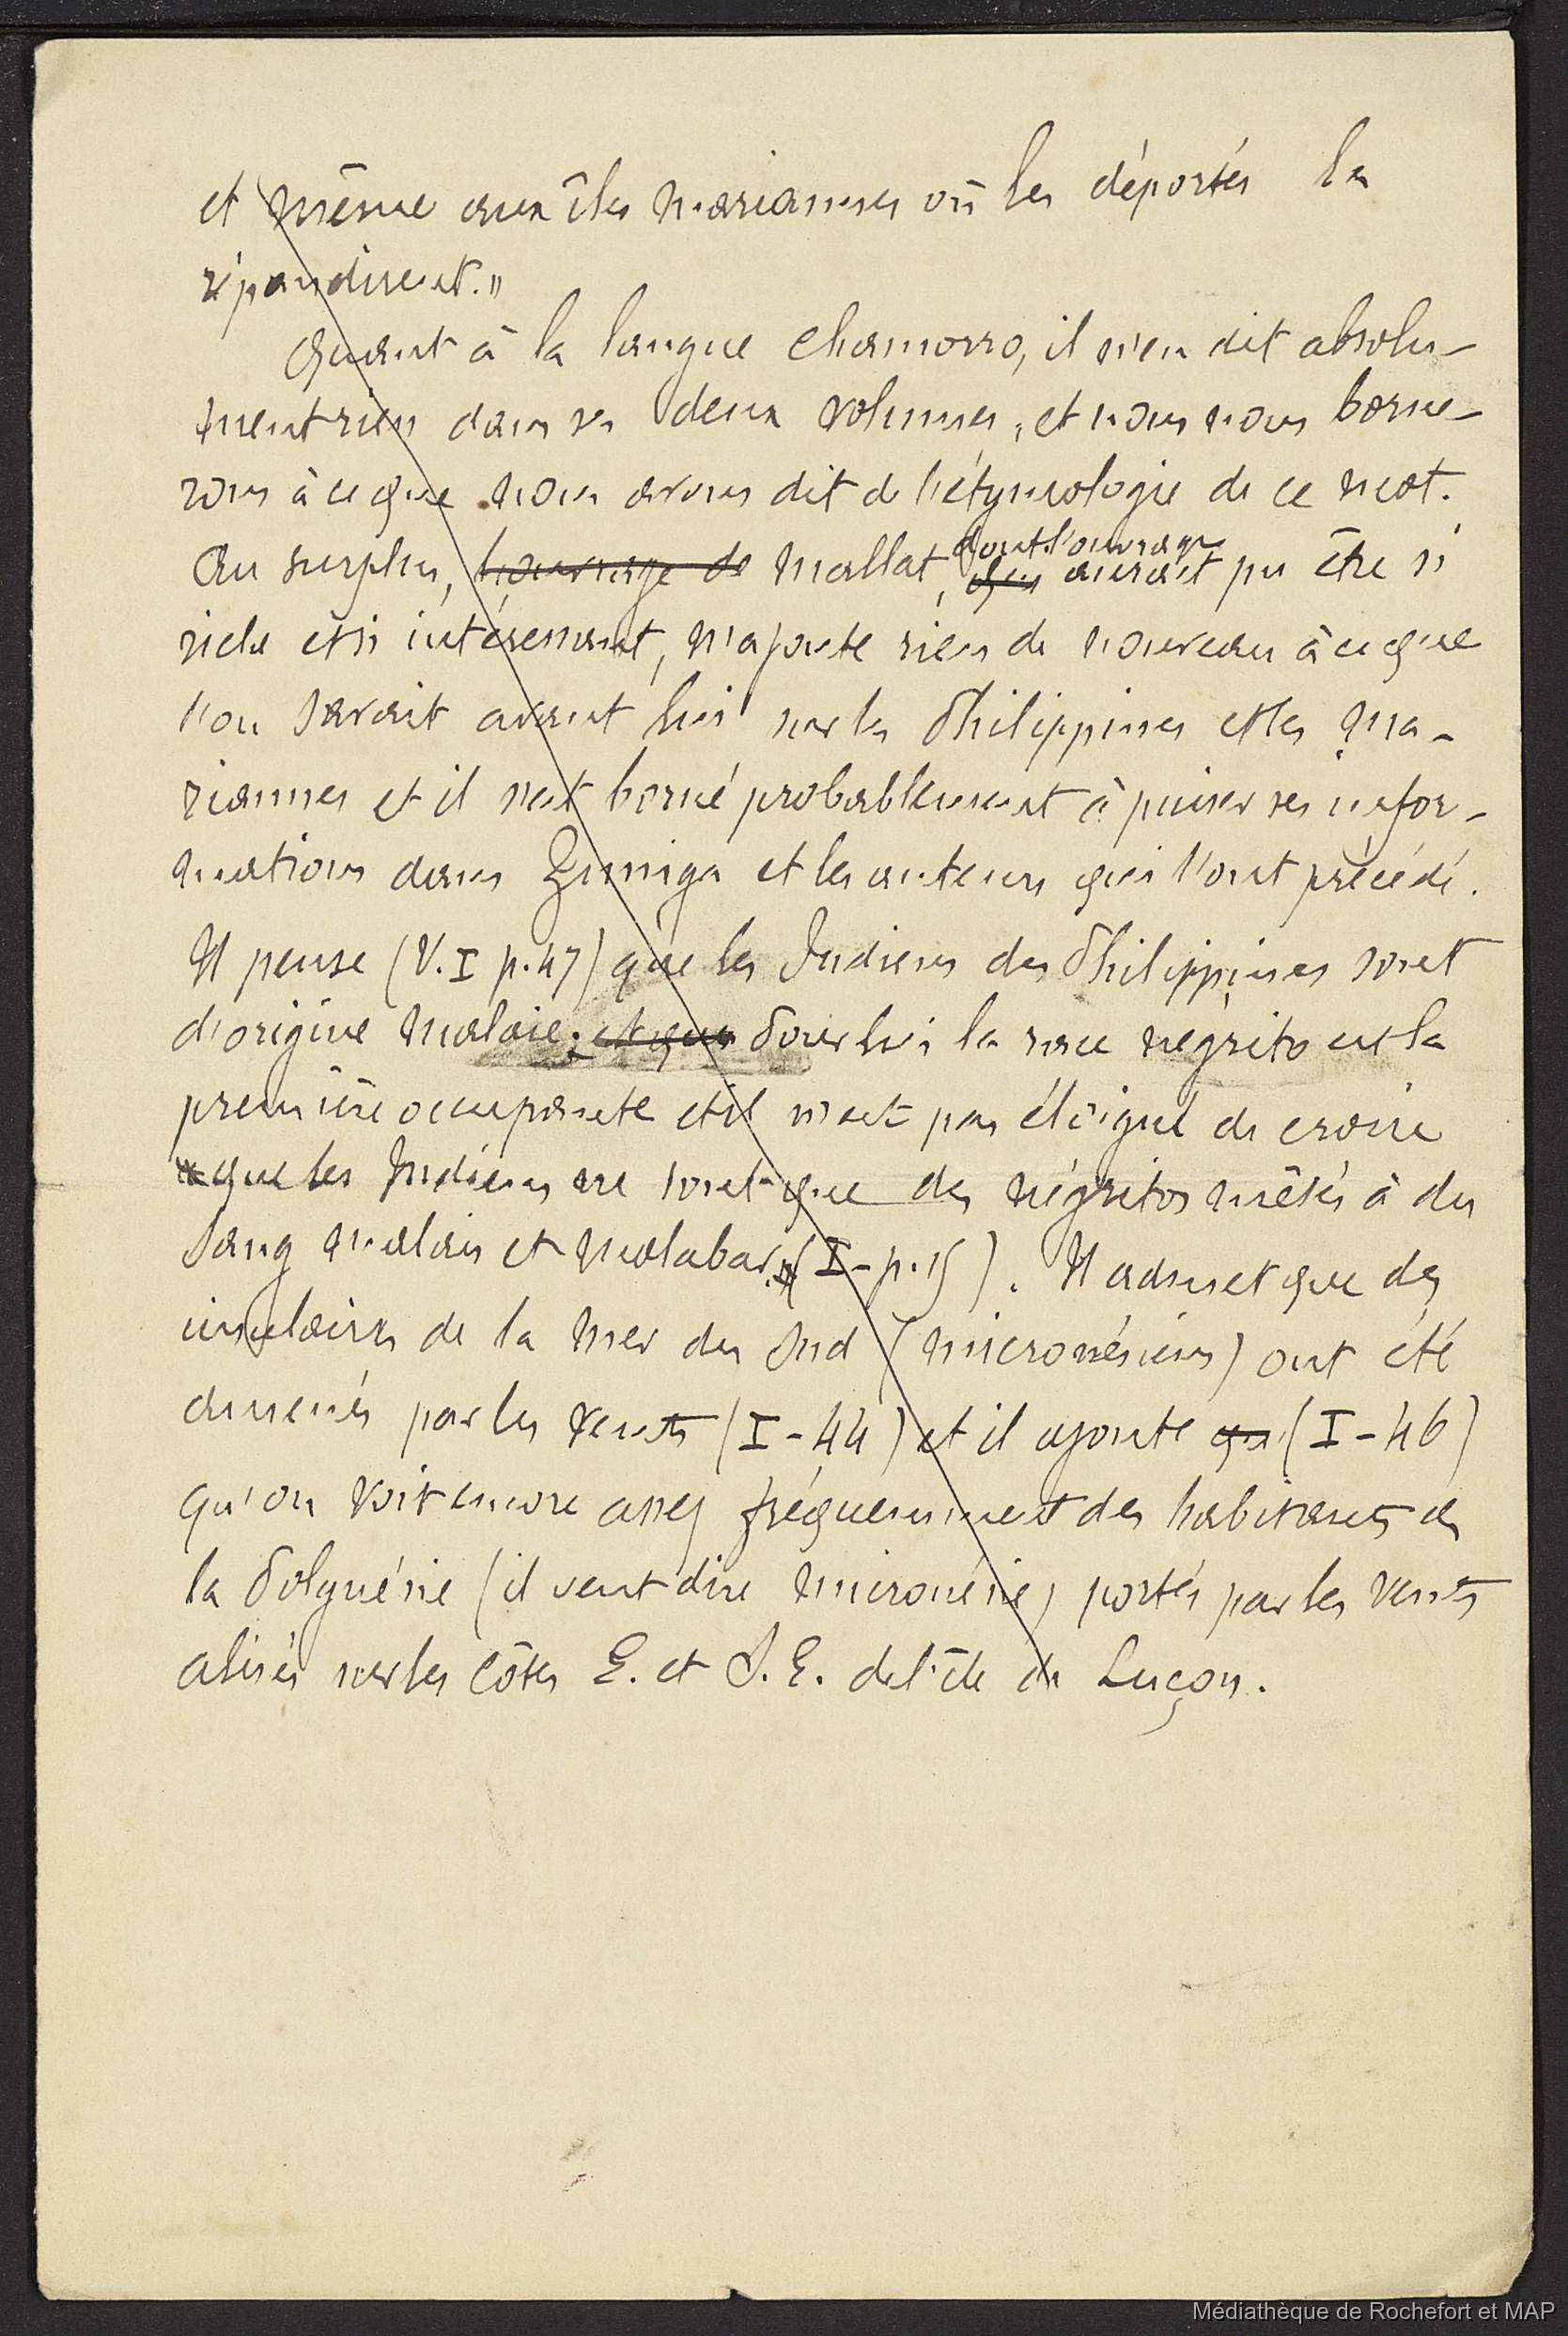 et même aux îles Mariannes où les déportés la
répandirent."
Quant à la langue Chamorro, il n'en dit absolu-
ment rien dans ses deux volumes, et nous nous borne-
rons à ce que nous avons dit de l'étymologie de ce mot.
Au surplus, l'ouvrage de Mallat, qui dont l'ouvrage aurait pu être si
riche et si intéressant, n'ajoute rien de nouveau à ce que
l'on savait avant lui sur les Philippines et les Ma-
riannes et il s'est borné probablement à puiser ses infor-
mations dans Zuniga et les auteurs qui l'ont précédé.
Il pense (V. I p. 47) que les Indiens des Philippines sont
d'origine malaie; et que Pour lui la race négrito est la
première occupante et il n'est pas éloigné de croire
que les Indiens ne sont que des négritos mêlés à du
sang malais et malabar (I - p. 15). Il admet que des
insulaires de la mer du Sud (micronésiens) ont été
amenés par les vents (I - 44) et il ajoute que (I - 46)
qu'on voit encore assez fréquemment des habitants de
la Polynésie (il veut dire Micronésie) portés par les vents
alisés sur les côtes E. et S. E. de l'île de Luçon.
Médiathèque de Rochefort et MAP